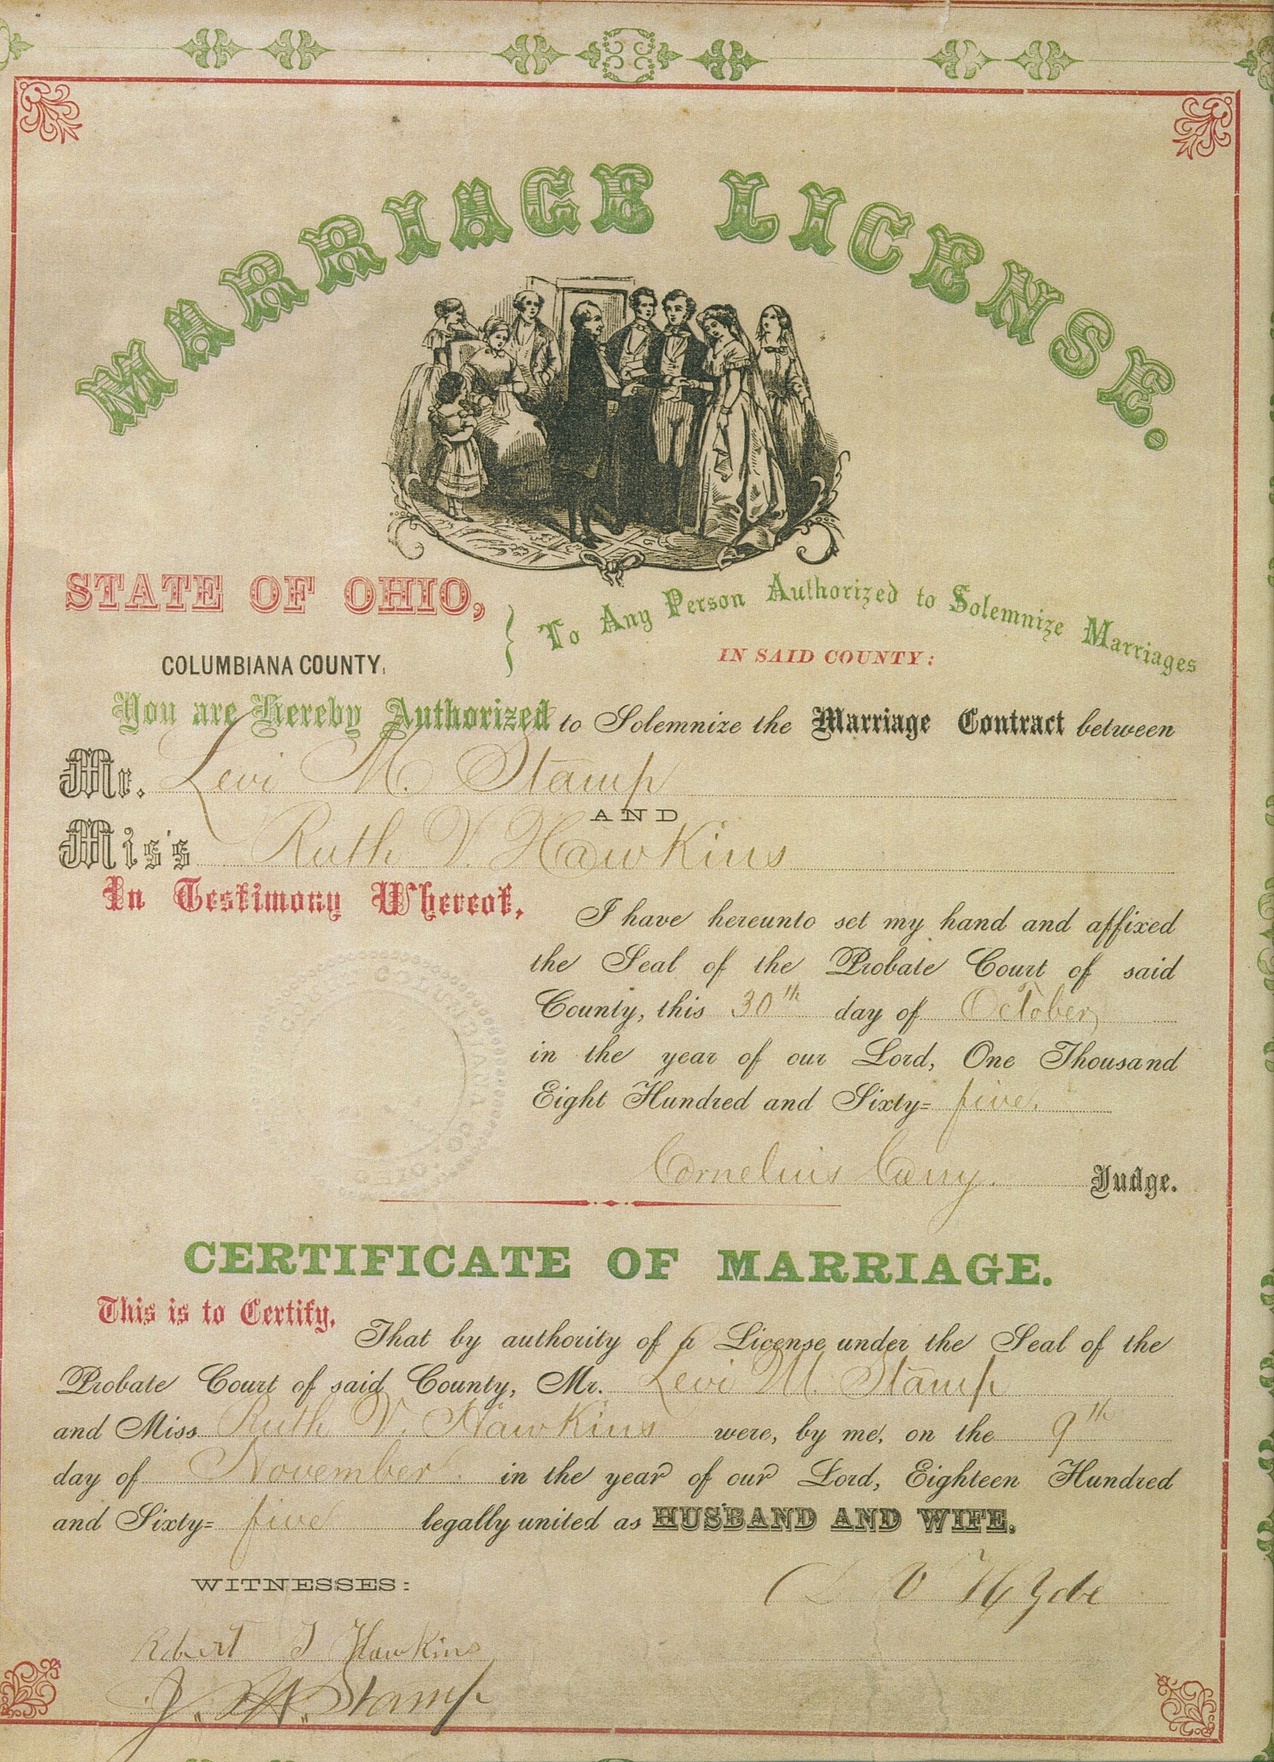 MARRIAGE LICENSE.
STATE OF OHIO,
COLUMBIANA COUNTY,
To Any Person Authorized to Solemnize Marriages
IN SAID COUNTY:
You are Hereby Authorized to Solemnize the Marriage Contract between
Mr. Levi M. Stamp
AND
Miss Ruth V. Hawkins
In Testimony Whereof,
I have hereunto set my hand and affixed
the Seal of the Probate Court of said
County, this 30th day of October
in the year of our Lord, One Thousand
Eight Hundred and Sixty= five.
Cornelius Curry. Judge.
CERTIFICATE OF MARRIAGE.
This is to Certify,
That by authority of a License under the Seal of the
Probate Court of said County, Mr. Levi M. Stamp
and Miss Ruth V. Hawkins were, by me, on the 9th
day of November in the year of our Lord, Eighteen Hundred
and Sixty= five legally united as HUSBAND AND WIFE.
V Hyde
WITNESSES:
Robert J Hawkins
Stamp